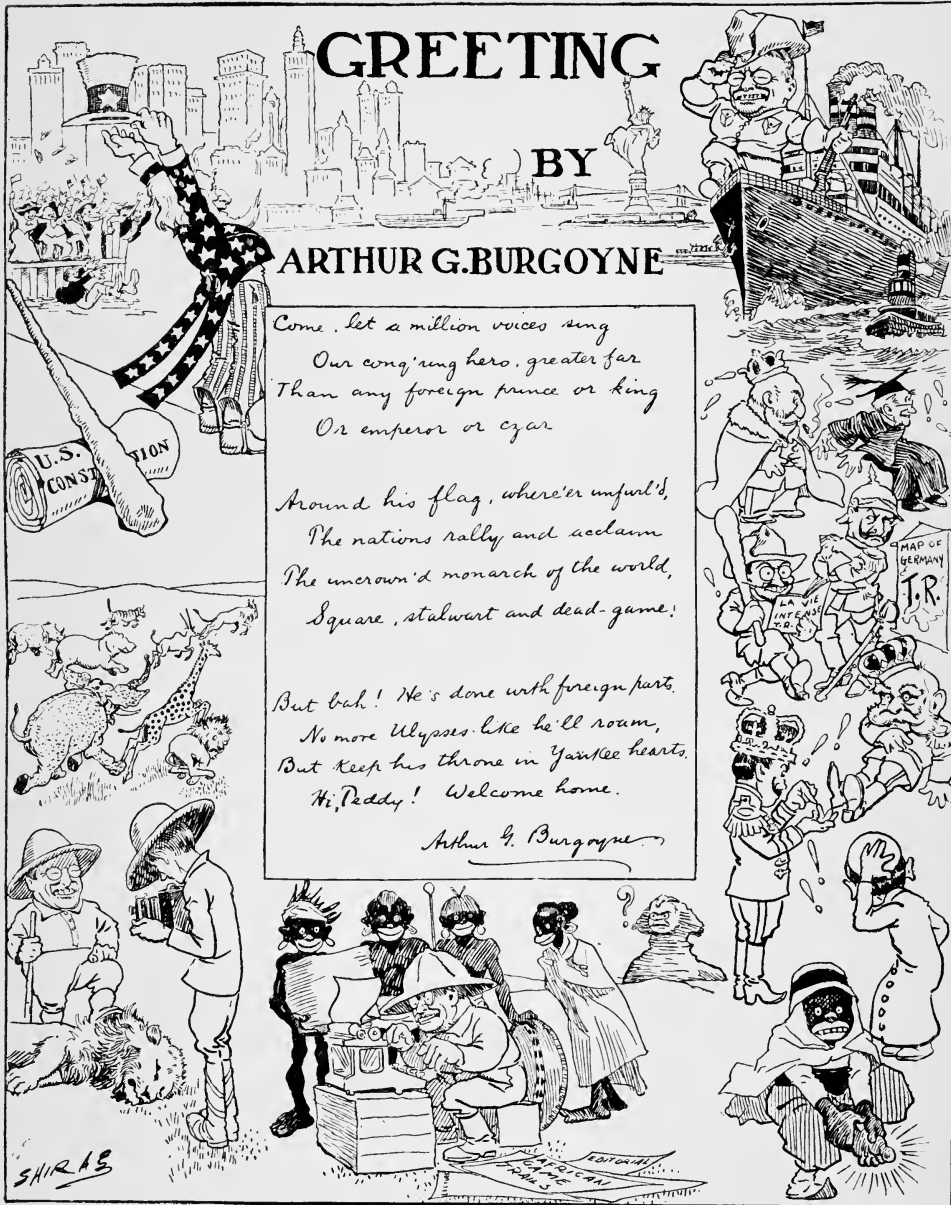 GREETING
BY
ARTHUR G. BURGOYNE
Come, let a million voices sing
Our conq'ring hero, greater far
Than any foreign prince or king
Or emperor or czar
Around his flag, where'er unfurl'd,
The nations rally and acclaim
The uncrown'd monarch of the world,
Square, stalwart and dead-game!
But bah! He's done with foreign parts.
No more Ulysses-like he'll roam,
But keep his throne in Yankee hearts.
Hi, Teddy! Welcome home.
Arthur G. Burgoyne
U.S.
CONSTITUTION
MAP OF
GERMANY
T.R.
LA VIE
INTENSE
T.R.
?
AFRICAN
GAME
TRAILS
EDITORIAL
SHIRAS